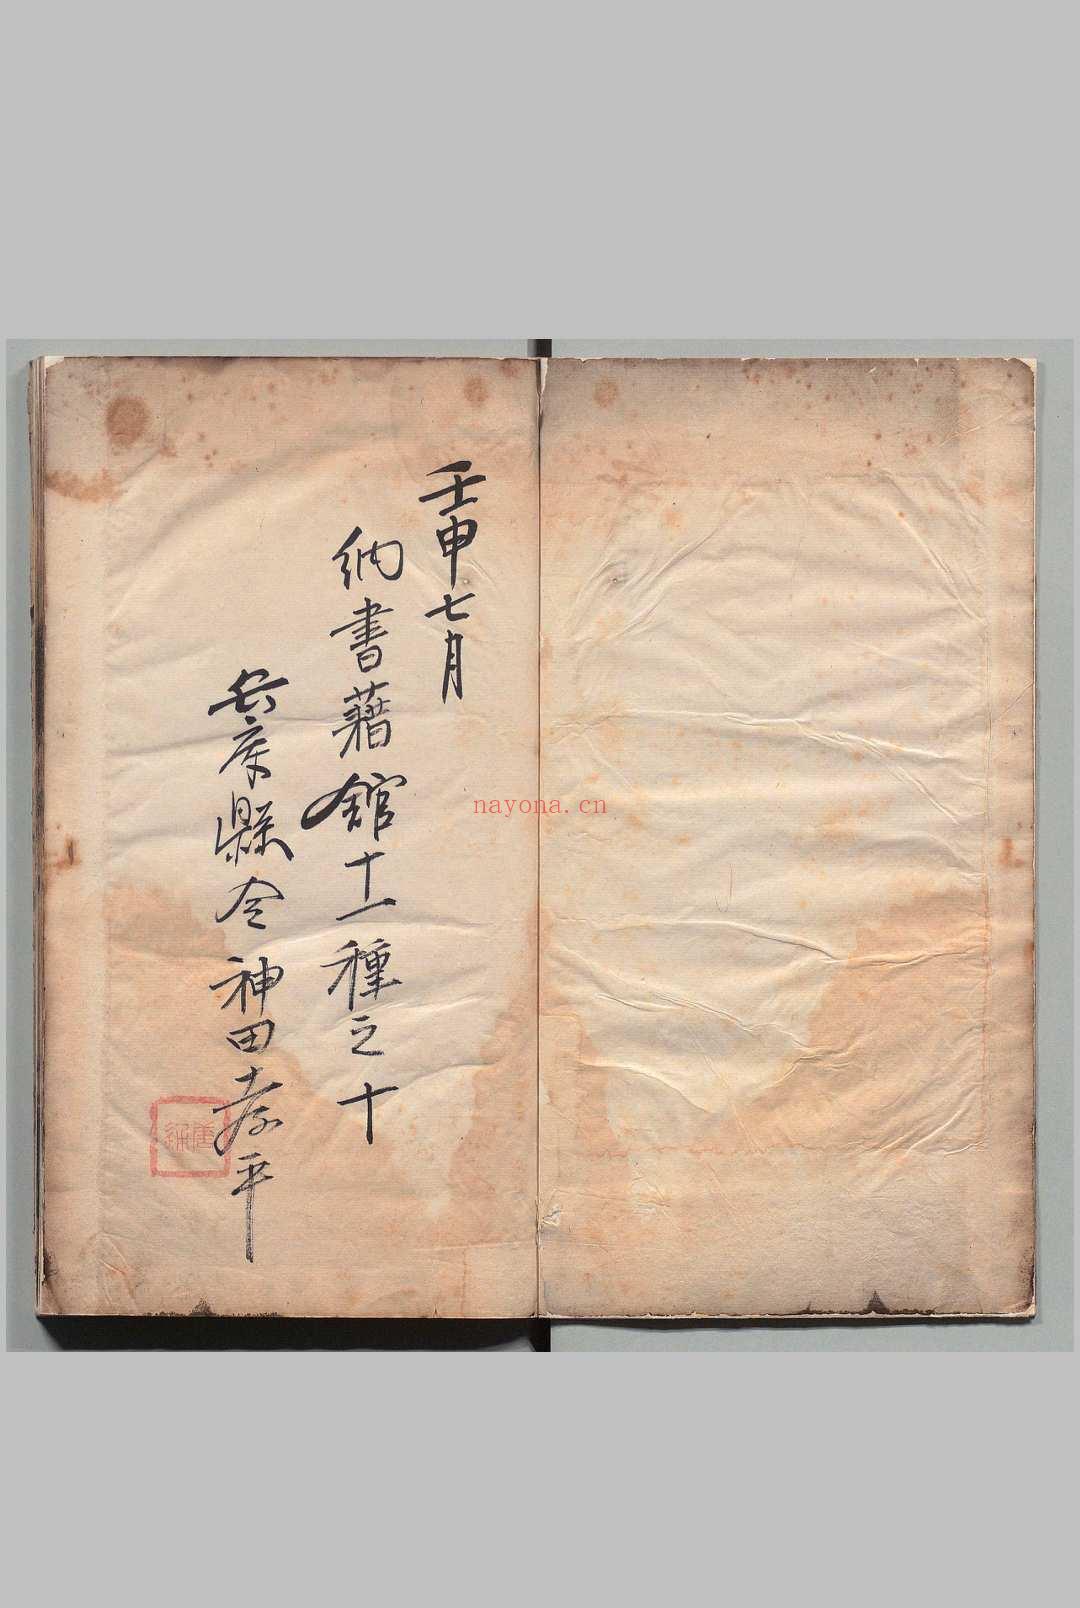 壬申七月
納書藉館十一種之十
兵庫縣令神田孝平
nayona.cn